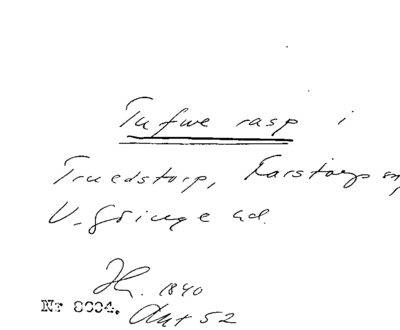 Tufwe rasp i
Truedstorp, Farstorps sn,
V. Göinge hd.
Th. 1840
Nr 8004. Akt 52